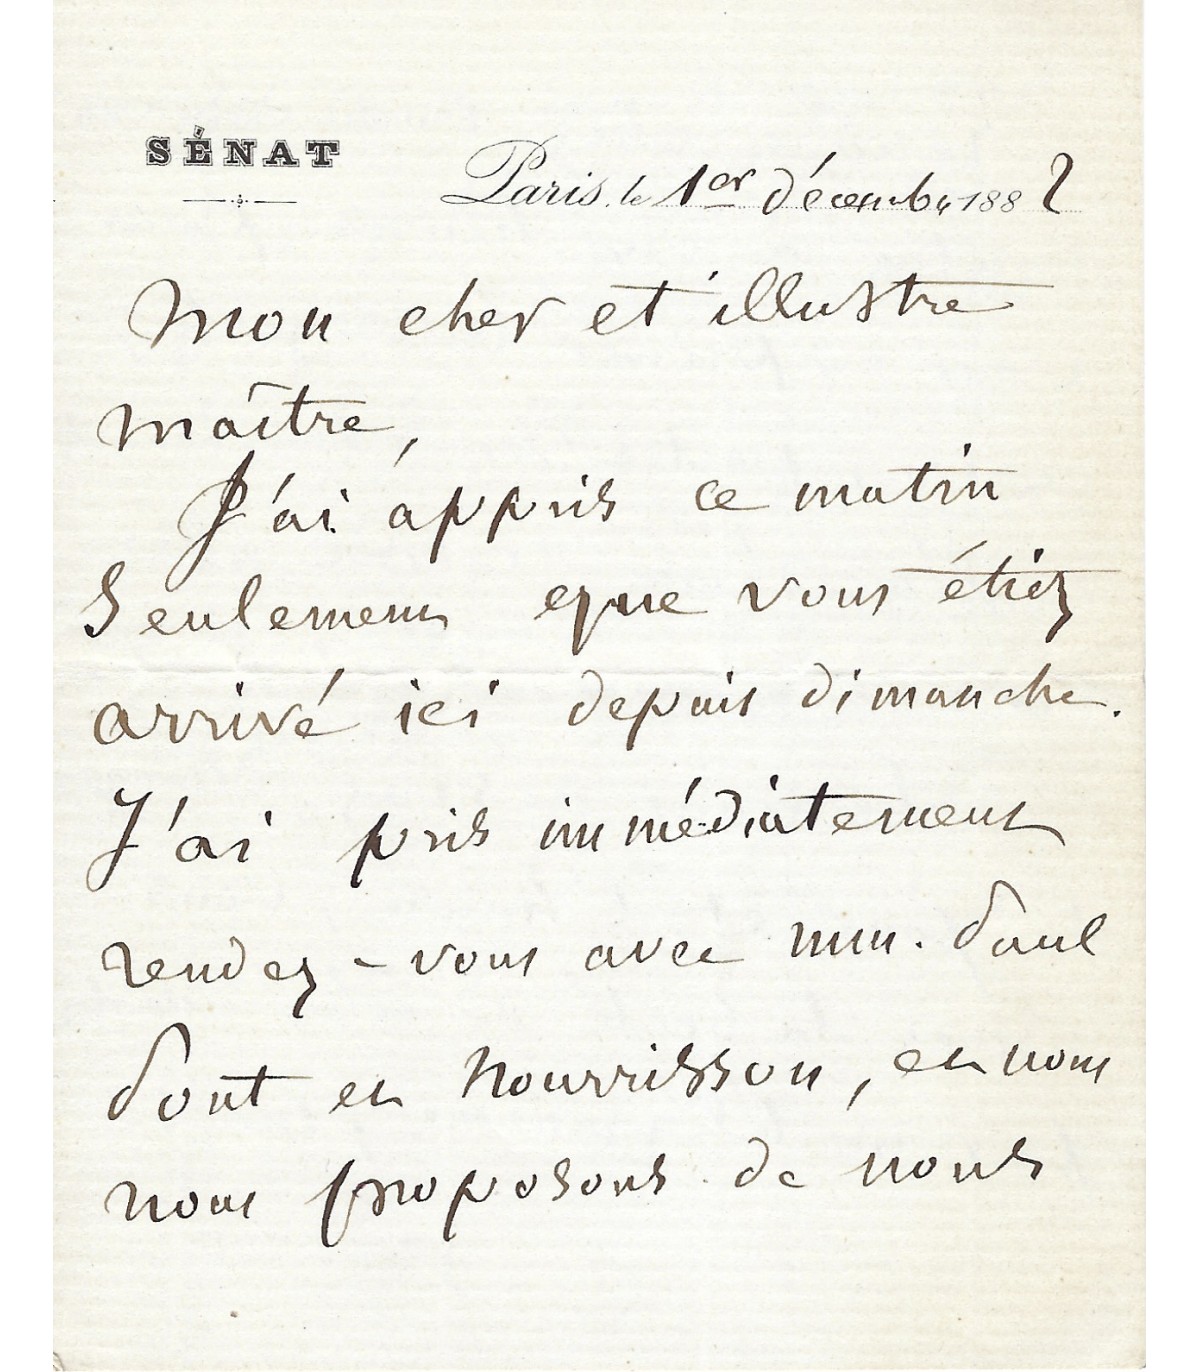 SÉNAT
Paris, le 1er décembre 1882
Mon cher et illustre
maître,
J'ai appris ce matin
seulement que vous étiez
arrivé ici depuis dimanche.
J'ai pris immédiatement
rendez-vous avec mm. Paul
Pont et Nourrisson, et nous
nous proposons de nous